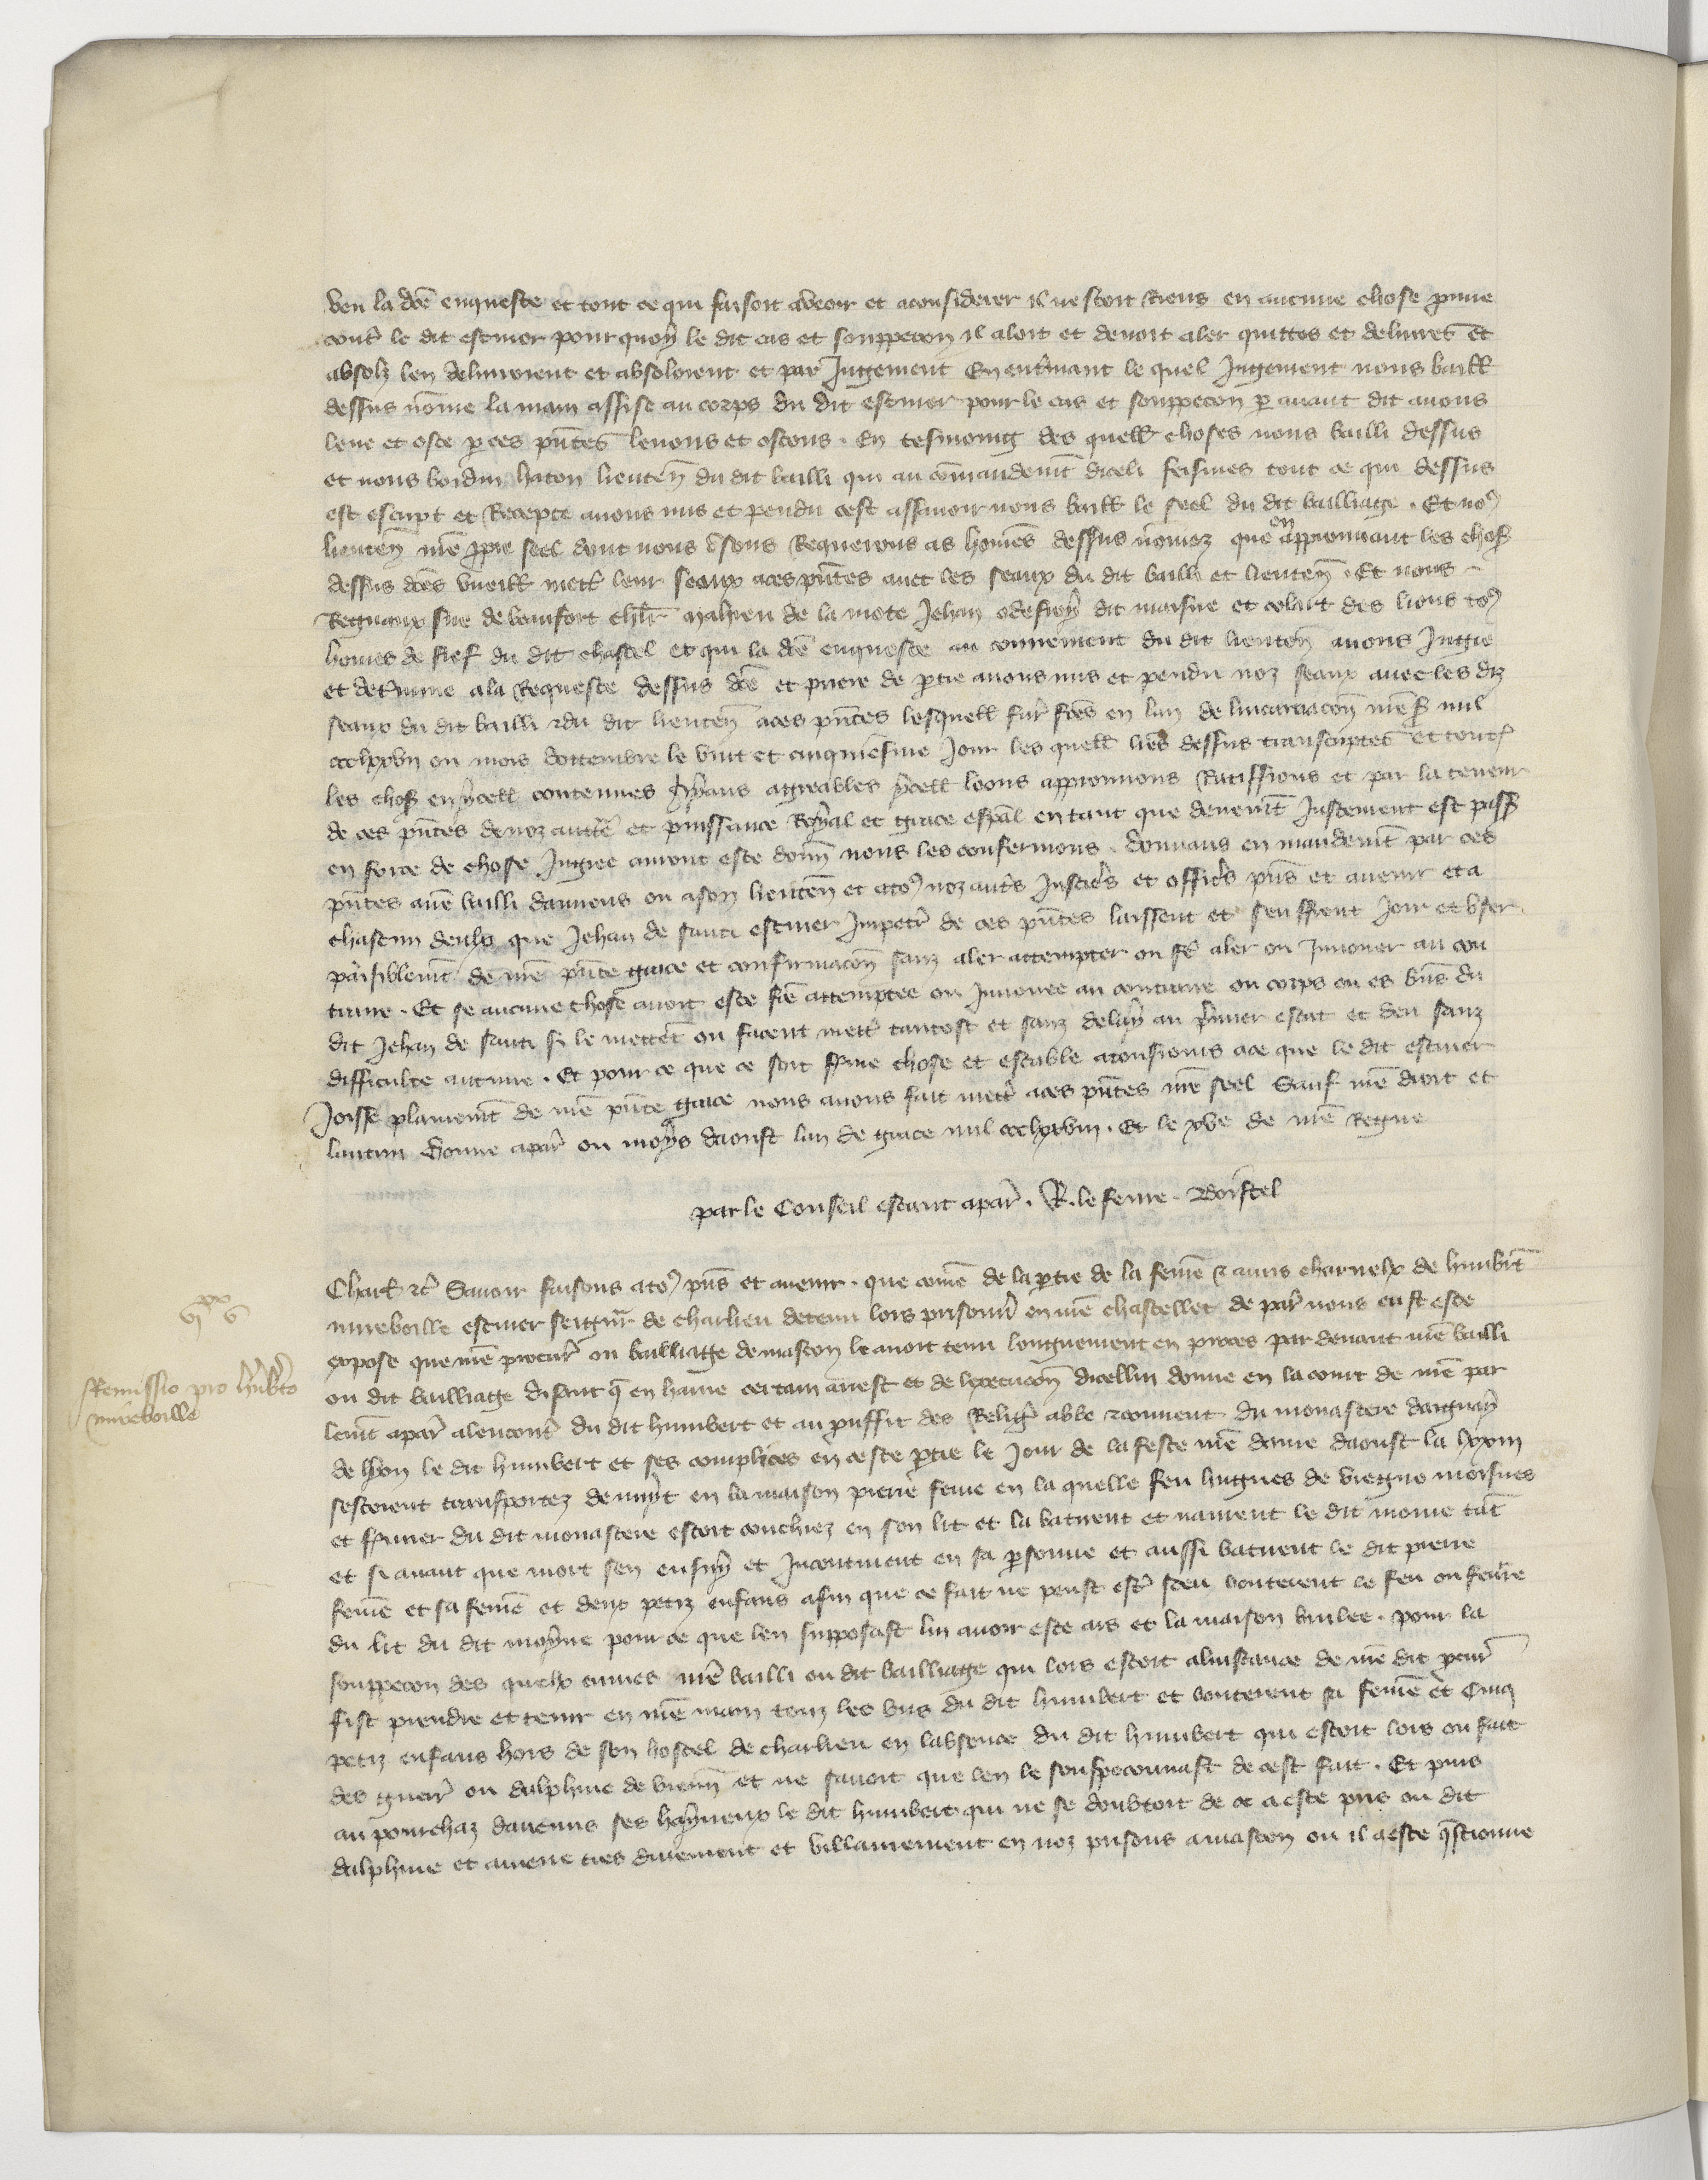 veu la dce enqueste et tout ce qui faisoit aveoir et aconsiderer il nestoit Riens en aucune chose prnue
contr le dit escuier pour quoy le dit cas et souppecon il aloit et devoit aler quittes et delivres et
absolz len delivroient et absoloient et par Jugement En entrinant le quel Jugement nous baill
dessus nome la main assise au corps du dit escuier pour le cas et souppecon par avant dit avons
leve et oste par ces pntes levons et ostons . En tesmoing des quell choses nous bailli dessus
et nous boidin haton lieuten du dit bailli qui au comandemt diceli feismes tout ce qui dessus
est escript et Recepte avons mis et pendu cest assavoir nous baill le seel du dit bailliage . Et nos
lieuten nre ppre seel dont nous usons Requerons as homes dessus nomez que en approuvant les chos
dessus dces vueill mettr leur seaux aces pntes avec les seaux du dit bailli et lieuten . Et nous
Regnaux sire de beaufort chlr mahieu de la mote Jehan odefroy dit maisne et colart des lions tos
homes de fief du dit chastel et qui la dce enqueste au conurement du dit lieuten avons Jugie
et determine ala Requeste dessus dce et priere de ptie avons mis et pendu noz seaux avec les diz
seaux du dit bailli et du dit lieuten aces pntes lesquell furt fces en lan de lincarnacon nres mil
ccclxxvii ou mois dottembre le vint et cinquiesme Jour les quell lres dessus transcriptes et toutes
les chos en ycell contenues Ayans agreables ycell loons approuvons Ratiffions et par la teneur
de ces pntes de noz auttre et puissance Royal et grace espal en tant que deuemt Justement est pass
en force de chose Jugiee auront este donn nous les confermons . donnans en mandemt par ces
pntes aure bailli damiens ou ason lieuten et atos noz autrs Justicrs et officrs pns et avenir et a
chascun deulx que Jehan de sauti escuier Impetr de ces pntes laissent et seuffrent Joir et user
paisiblemt de nre pnte grace et confirmacon sanz aler attempter ou fe aler ou Innover au con
traire . Et se aucune chose avoit este fce attemptee ou Innovee au contraire ou corps ou es bns du
dit Jehan de sauti si le mettet ou facent mettr tantost et sanz delay au prmier estat et deu sanz
difficulte aucune . Et pour ce que ce soit ferme chose et estable atousiours ace que le dit escuier
Joisse plainemt de nre pnte grace nous avons fait mettr aces pntes nre seel Sauf nre droit et
lautrui Donne a par ou moys daoust lan de grace mil ccclxxviii . Et le xve de nre Regne
par le Conseil estant apar . R . lefevre . Boistel
Charl etc Savoir faisons atos pns et avenir . que come de la ptie de la feme et amis charnelx de humbert
mireboille escuier seigneur de charlieu detenu lors prisonnr en nre chastellet de par nous eust este
expose que nre procur ou bailliage de mascon le avoit tenu longuement en proces par devant nre bailli
ou dit bailliage disant q en haine certain arrest et de lexecucon dicellui donne en la court de nre par
lemt apar alencontr du dit humbert et au proffit des Religr abbe et couvent du monastere daignay
de lyon le dit humbert et ses complices en ceste ptie le Jour de la feste nre dame daoust la lxxiii
sestoient transportez de nuyt en la maison pierre feme en la quelle feu hugues de viegno moisnes
et fermier du dit monastere estoit couchiez en son lit et la batirent et navrent le dit moine tat
et si avant que mort sen ensuy et Incontinent en sa psonne et aussi batirent le dit pierre
feme et sa feme et deux petiz enfans afin que ce fait ne peust estr sceu bouterent le feu ou feurre
du lit du dit moyne pour ce que len supposast lui avoir este ars et la maison brulee . pour la
souppecon des quelx crimes nre bailli ou dit bailliage qui lors estoit alinstance de nre dit pcur
fist prendre et tenir en nre main touz les bns du dit humbert et bouterent sa feme et cinq
petiz enfans hors de son hostel de charlieu en labsence du dit humbert qui estoit lors ou fait
des guerr ou dalphine de vienn et ne savoit que len le souspeconnast de cest fait . Et puis
au pourchaz daucuns ses hayneux le dit humbert qui ne se doubtoit de ce a este pris ou dit
dalphine et amene tres durement et villainement en noz prisons a mascon ou il a este qstionne
vi xx v
Remissio pro hubto
mireboille